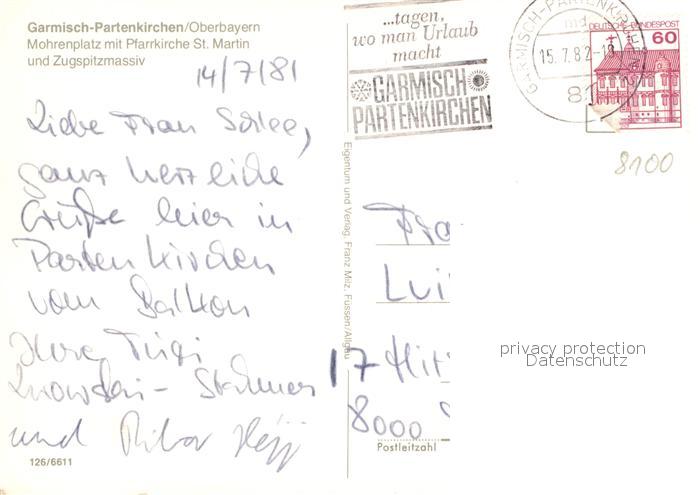 Garmisch-Partenkirchen/Oberbayern
Mohrenplatz mit Pfarrkirche St. Martin
und Zugspitzmassiv
14/7/81
Liebe Frau
ganz herzliche
Grüße hier in
Partenkirchen
vom Balkon
Ihre
und
126/6611
Eigentum und Verlag, Franz Milz, Füssen/Allgäu
...tagen,
wo man Urlaub
macht
GARMISCH
PARTENKIRCHEN
GARMISCH-PARTENKIRCHEN
15.7.82-18
81
DEUTSCHE BUNDESPOST
60
8100
Fra
Lui
17
8000
Postleitzahl
privacy protection
Datenschutz